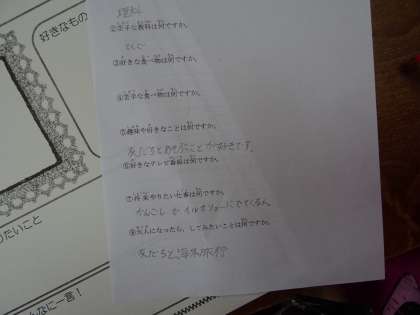 好きなもの
理科
②苦手な教科は何ですか。
こくご
③好きな食べ物は何ですか。
④苦手な食べ物は何ですか。
⑤趣味や好きなことは何ですか。
友だちとあそぶことが好きです。
⑥好きなテレビ番組は何ですか。
⑦将来やりたい仕事は何ですか。
かんごし か イルカショーにでてくる人
⑧大人になったら、してみたいことは何ですか。
友だちと海外旅行
りたいこと
んなに一言！